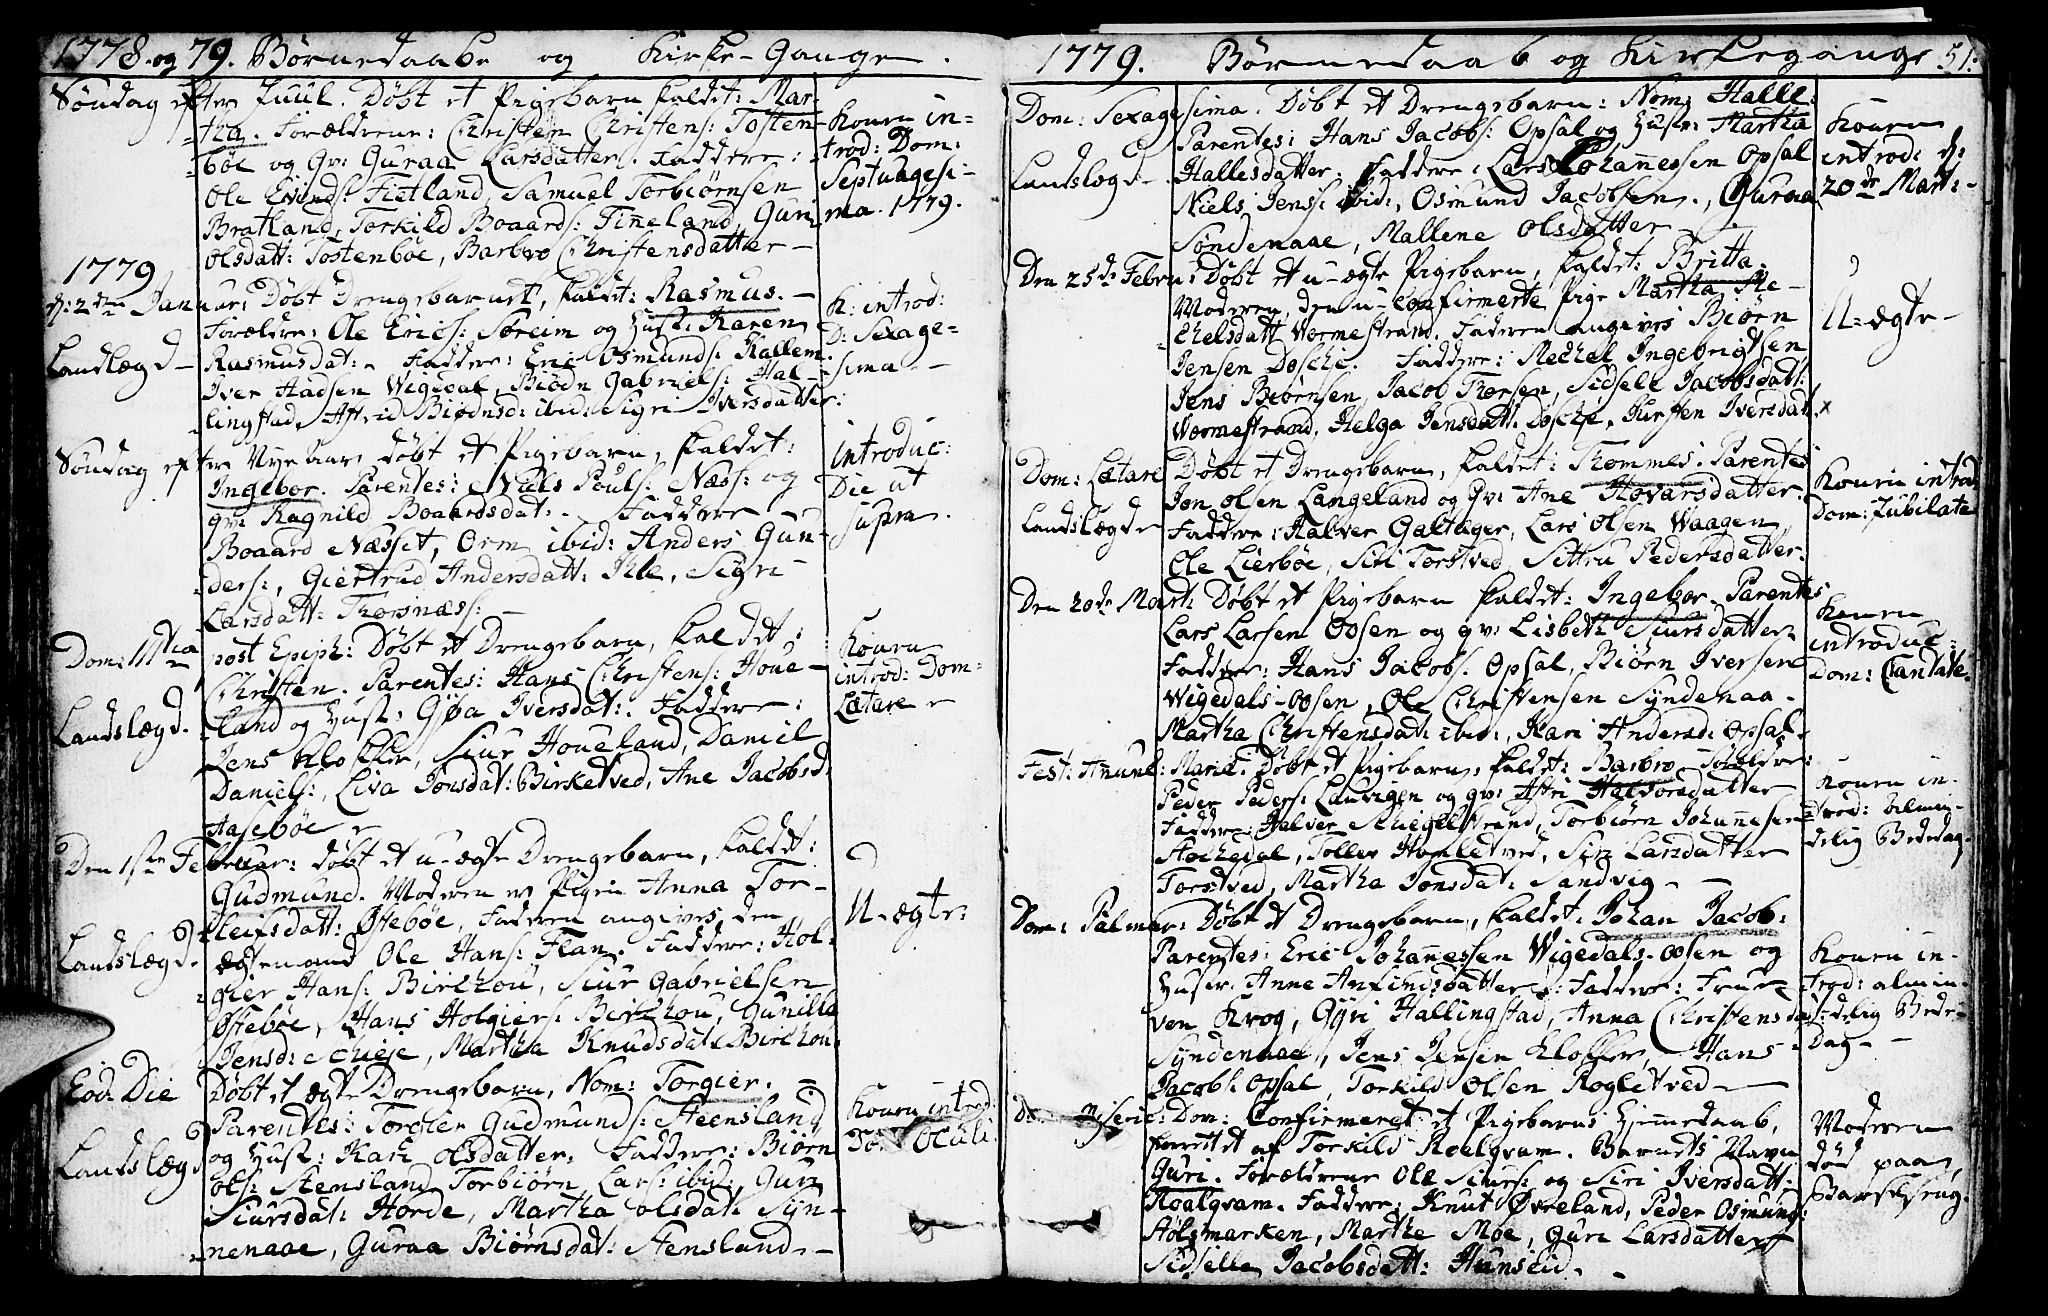 1778. og 79. Børnedaabe og Kirke-Gange.
Søndag efter Juul. Døbt et Pigebarn kaldet: Mar-
tha. Forældrene: Christen Christens: Tosten-
bøe og Gv: Guraa Larsdatter. Faddere:
Ole Evinds: Fietland, Samuel Torbiørnsen
Bratland, Torkild Boaards: Tinneland, Guri
Olsdatt: Tostenbøe, Barbro Christensdatter
Konen in-
trod: Dom:
Septuagesi-
ma. 1779.
1779
d: 2den Januar: Døbt Drengebarnet, kaldet: Rasmus.
Landlægd
Forældre: Ole Erics: Søreim og Hust: Karen
Rasmusdat: Faddere: Eric Osmunds: Hallem
Iver Hadsen Wigedal, Biødn Gabriels: Hal-
lingstad, Astrid Biødnsd: ibid: Sigri Iversdatter:
K: introd:
D: Sexage-
sima
Søndag efter Nye aar, døbt et Pigebarn, kaldet:
Ingebor. Parentes: Niels Pouls: Næss: og
gv: Ragnild Boaardsdat: Faddere
Boaard Næsset, Orm ibid: Anders Gun-
ders:, Giertrud Andersdatt: Ihle, Sigri
Larsdatt: Thorsnæss:
introduc:
Die ut
supra.
Dom: 1ma post Epiph: Døbt et Drengebarn, kaldet:
Landslægd.
Christen. Parentes: Hans Christens: Houe-
land og Hust: Gjøa Iversdat: Faddere:
Jens Kloster, Siur Houeland, Daniel
Daniels:, Liva Jonsdat: Birketved, Ane Jacobsd:
Aasebøe
Konen
introd: Dom:
Lætare
Den 1ste Februar: døbt et u-ægte Drengebarn, kaldet:
Landslægd.
Gudmund. Moderen er Pigen Anna Tor-
kleifsdatt: Østebøe, Faderen angives, den
ægtemand Ole Hans: Flan. Faddere: Hol-
gier Hans: Birchou, Siur Gabrielsen
Østebøe, Hans Holgiers: Birchou, Gunilla
Jensd: Schieje, Martha Knudsdat: Birchou.
U-ægte:
Eod: Die Døbt et ægte Drengebarn, Nom: Torgier.
Landslægd
Parentes: Torgier Gudmunds: Steensland
og Hust: Kari Olsdatter. Faddere: Biørn
Ols: Stensland Torbiørn Lars: ibid:, Guri
Siursdat: Horde, Martha Olsdat: Syn-
nenaae, Guraa Biørnsdat: Stensland.
Konen introd:
Dom: Oculi.
1779. Børnedaab og Kirkegange 51.
Dom: Sexagesima. Døbt et Drengebarn: Nom: Halle:
Landslægd
Parentes: Hans Jacobs: Opsal og Hustr: Martha
Hallesdatter. Faddere: Lars Johannessen Opsal
Niels Jens: ibid:, Osmund Jacobsen., Guraa
Søndenaae, Mallene Olsdatter
Konen
introd: d:
20de Mart:
Den 25de Febru: Døbt et u-ægte Pigebarn, kaldet: Britta.
Moderen, den u-confirmerte Pige Martha Me-
chelsdatt Wormestrand. Faderen angives Biørn
Jensen Døsche. Faddere: Mechel Ingebrigtsen
Jens Biørnsen, Jacob Thorsen, Sidsele Jacobsdatt:
Wormestrand, Helga Jensdatt: Døsche, Kirsten Iversdat:
U-ægte
Dom: Lætare Døbt et Drengebarn, kaldet: Thommes. Parentes
Landslægde
Jon Olsen Langeland og Gv: Ane Hovarsdatter.
Faddere: Halver Galtager, Lars Olsen Waagen,
Ole Lierbøe, Siri Torstved, Sittru Pedersdatter.
Konen introd:
Dom: Jubilate
Den 20de Mart: Døbt et Pigebarn kaldet: Ingebor. Parentes
Lars Larsen Oosen og gv: Lisbeth Siursdatter
Faddere: Hans Jacobs. Opsal, Biørn Iversen
Wigedals-oosen, Ole Christensen Syndenaa.
Martha Christensdat: ibid:, Kari Andersd: Opsal.
Konen
introduc:
Dom: Cantate.
Fest: Anunt: Mariæ. Døbt et Pigebarn, kaldet: Barbro. Forældre:
Peder Peders: Lauvigen og gv: Astri Halvorsdatter
Faddere: Halver Skiegelstrand, Torbiørn Johannesen
Stochedal, Tollev Hamletved, Siri Larsdatter
Torstved, Martha Jonsdat: Sandvig
Konen in-
trod: almin-
delig Bededag.
Dom: Palmar: Døbt et Drengebarn, kaldet: Johan Jacob:
Parentes: Eric Johannessen Wigedals-oosen og
Hustr. Anne Anfindsdatter: Faddere: Fruer
ven Krog, Gyri Hallingstad, Anna Christensdat:
Syndenaae, Jens Jensen Kloster, Hans
Jacobs: Opsal, Torkild Olsen Rogletved
Konen in-
trod: almin-
delig Bede-
Dag
Miseric: Dom: Confirmeret et Pigebarns Hjemmedaab,
forrettet af Torkild Roalqvam. Barnets Navn
Guri. Forældrene Ole Siurs: og Siri Iversdatt:
Roalqvam. Faddere: Knut Øvreland, Peder Osmund:
Holsmarken, Marthe Moe, Guri Larsdatter
Sidselle Jacobsdatt: Hunseid.
Moderen
død paa
Barselseng.